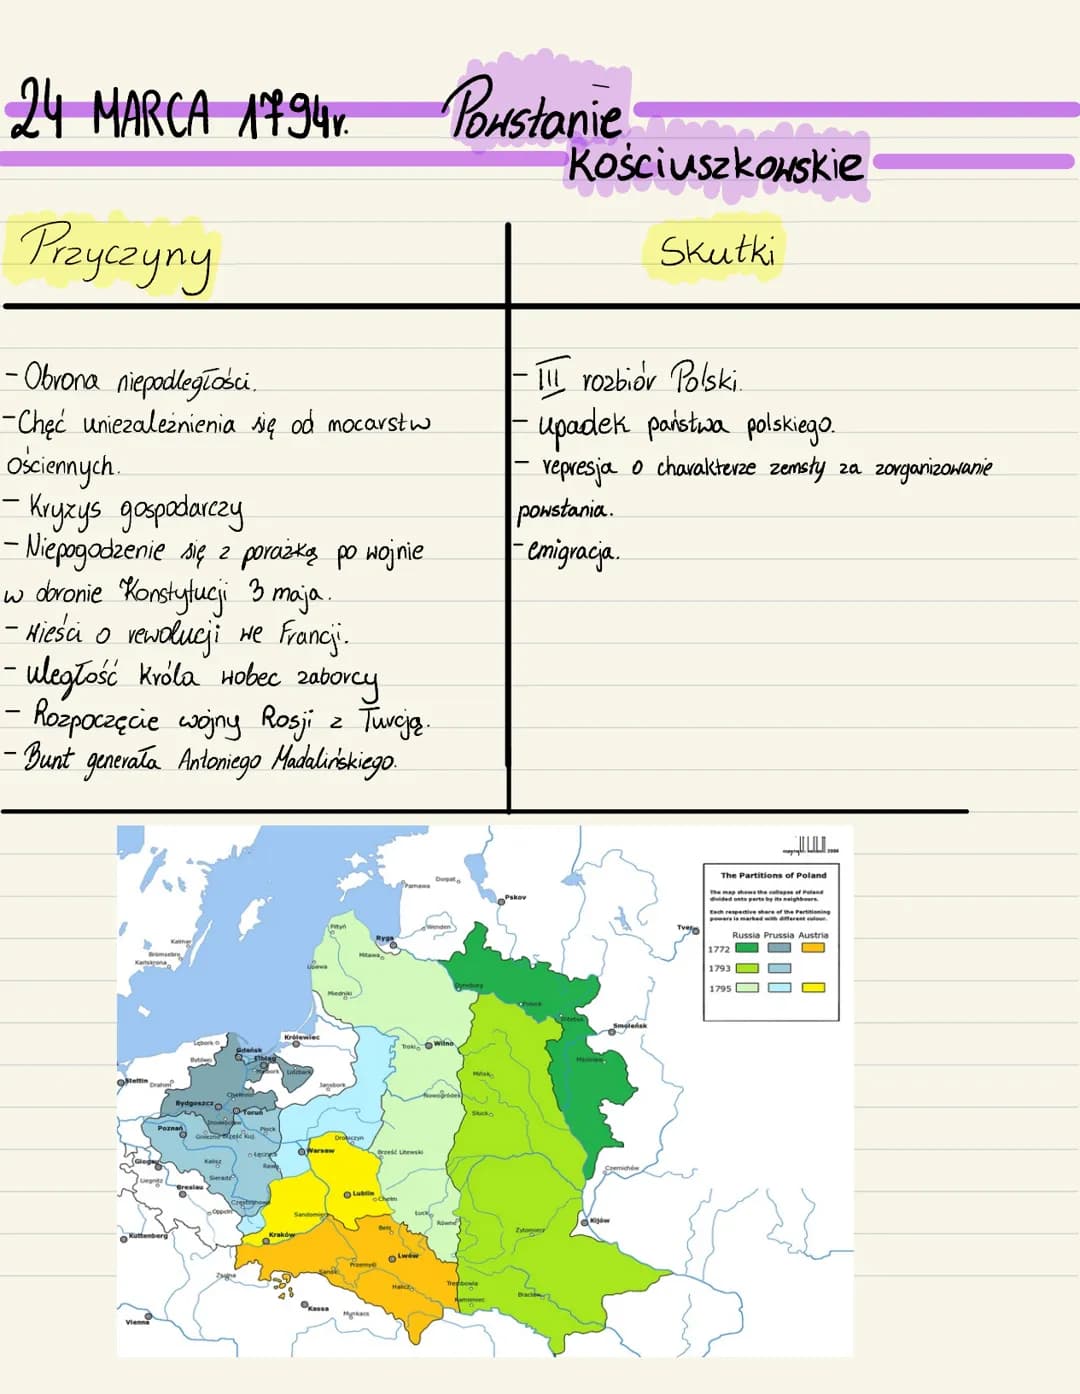 24 MARCA 1794r. Powstanie
Kościuszkowskie
Przyczyny
Skutki
- Obrona niepodległości.
- Chęć uniezależnienia się od mocarstw
ościennych.
- Kryzys gospodarczy
- Niepogodzenie się z porażką po wojnie
w obronie Konstytucji 3 maja.
- Wieści o rewolucji we Francji.
- uległość króla wobec zaborcy
- Rozpoczęcie wojny Rosji z Turcją.
- Bunt generała Antoniego Madalińskiego.
- III rozbiór Polski.
- upadek państwa polskiego.
- represja o charakterze zemsty za zorganizowanie
powstania.
- emigracja.
The Partitions of Poland
The map shows the collapse of Poland
divided onto parts by its neighbours.
Each respective share of the Partitioning
powers is marked with different colour.
Russia Prussia Austria
1772
1793
1795
Dorpat
Parnawa
Pskov
Wenden
Tver
Piltyń
Ryga
Mitawa
Kalmar
Brömsebro
Karlskrona
Lipawa
Dyneburg
Miedniki
Połock
Witebsk
Smoleńsk
Królewiec
Lębork
Gdańsk
Bytów
Elbląg
Malbork
Lidzbark
Troki
Wilno
Mścisław
Stettin
Drahim
Jansbork
Mińsk
Chełmno
Nowogródek
Bydgoszcz
Toruń
Słuck
Inowrocław
Poznań
Płock
Gniezno
Brześć Kuj.
Drohiczyn
Warsaw
Brześć Litewski
Łęczyca
Rawa
Kalisz
Glogau
Czernichów
Liegnitz
Sieradz
Breslau
Lublin
Chełm
Częstochowa
Oppeln
Sandomierz
Łuck
Równe
Kijów
Bełz
Żytomierz
Kuttenberg
Kraków
Lwów
Przemyśl
Sanok
Żylina
Halicz
Trembowla
Kamieniec
Bracław
Kassa
Munkacs
Vienna